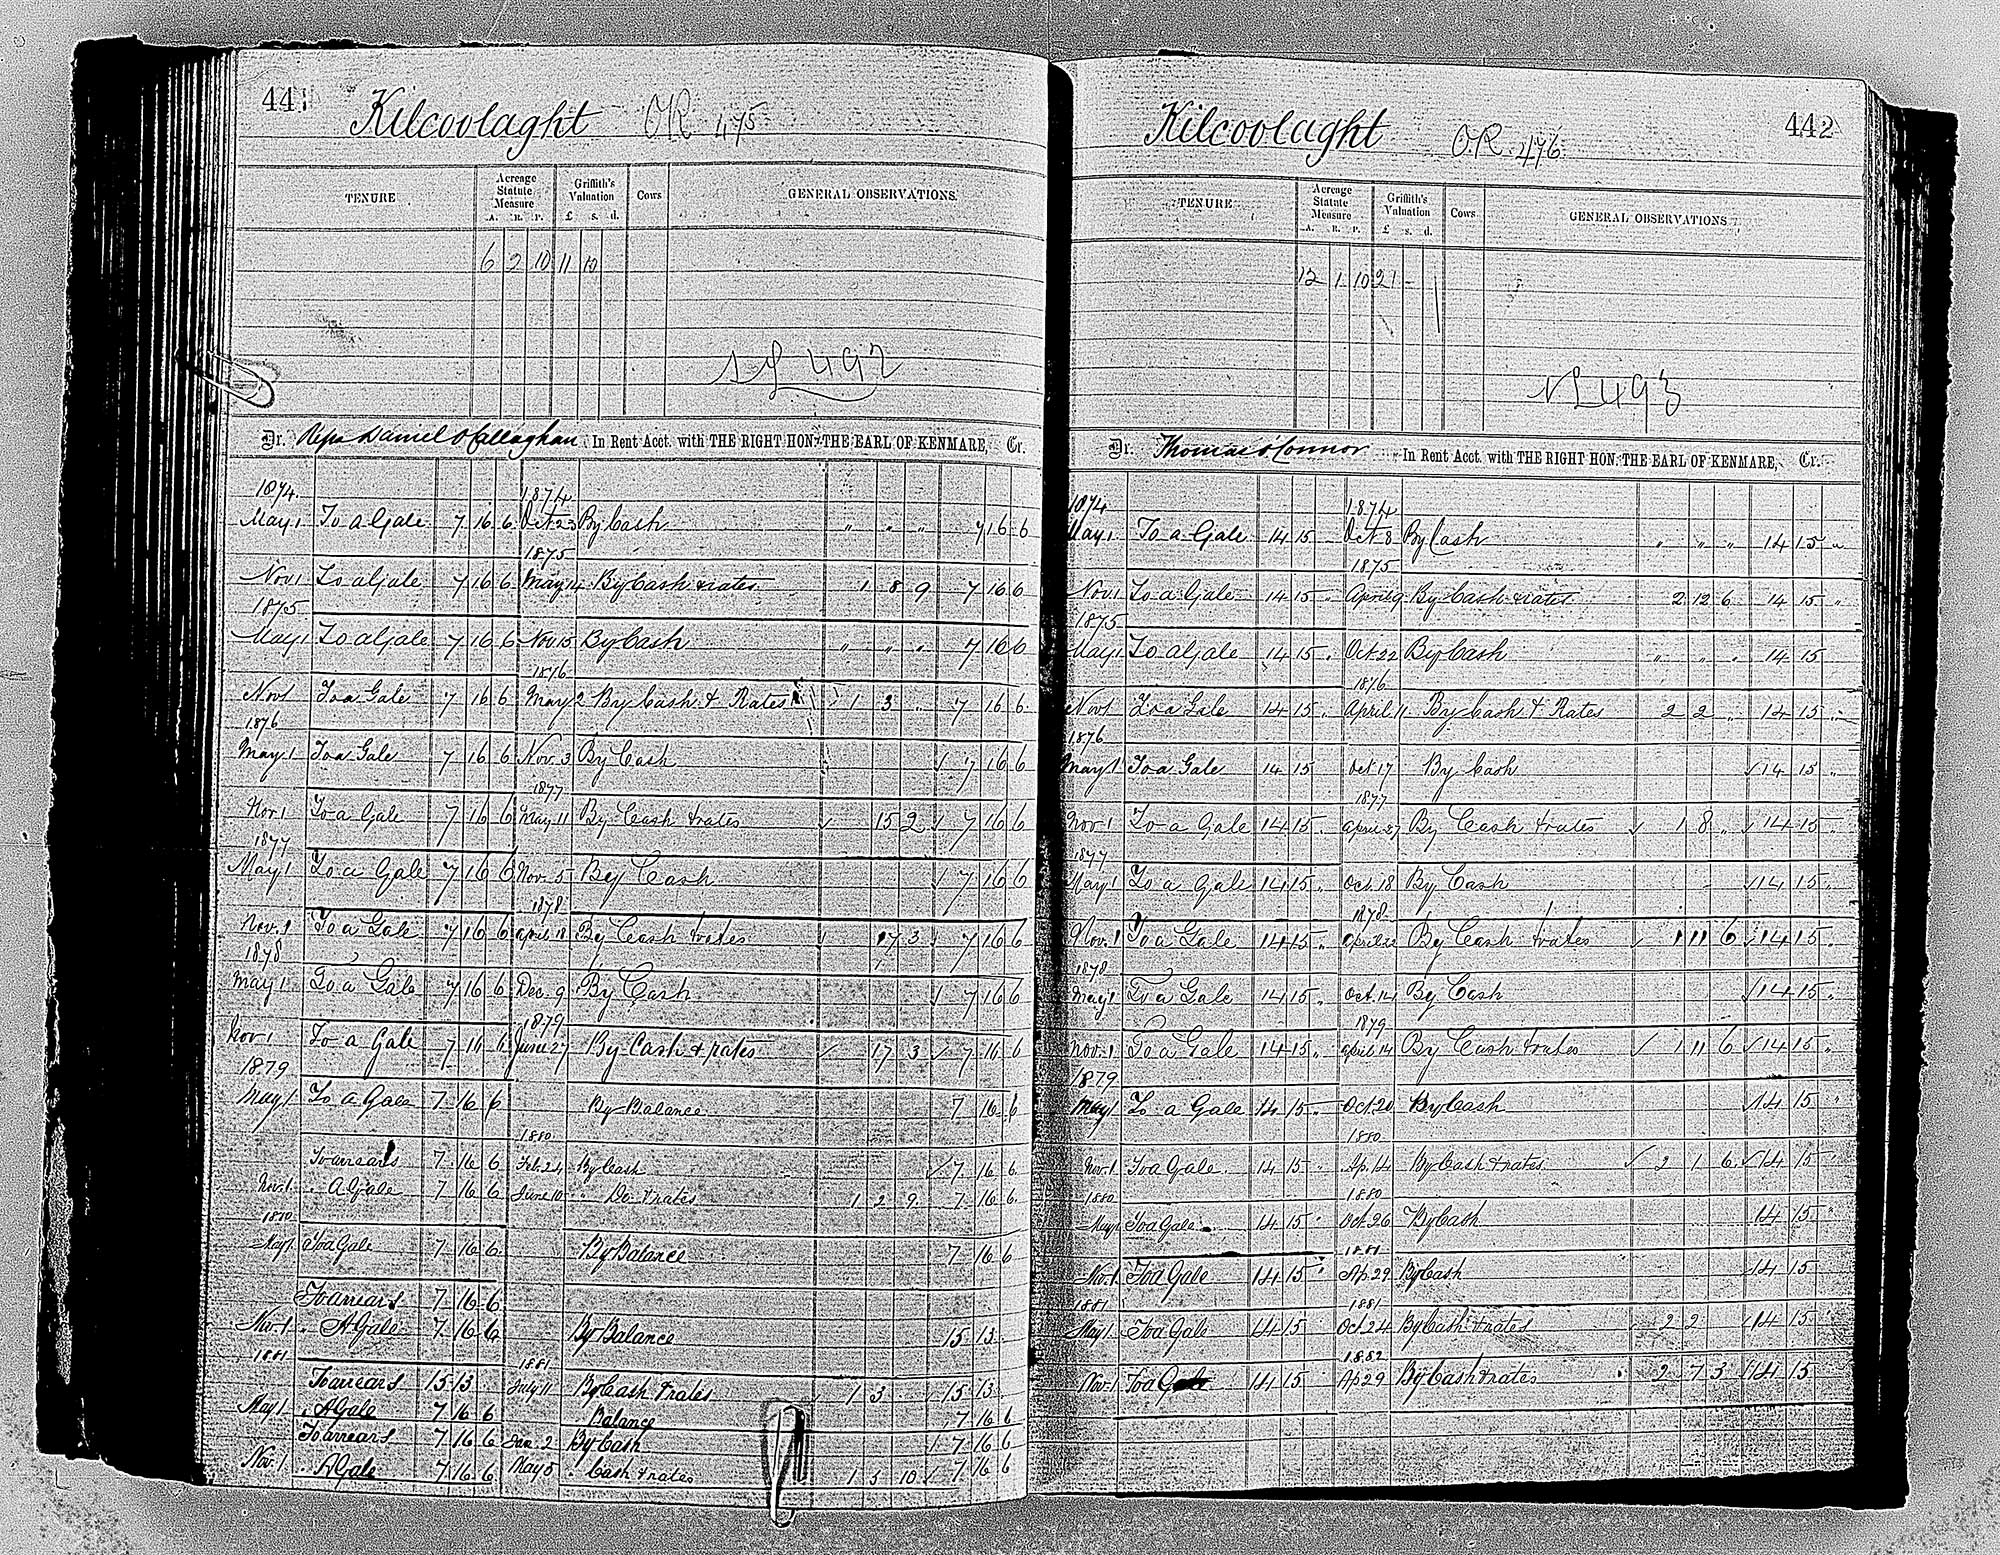 441 Kilcoolaght OR 475
TENURE Acreage Statute Measure Griffith's Valuation Cows GENERAL OBSERVATIONS.
A. R. P. £ s. d.
6 2 10 11 10
NL 492
Dr. Reps Daniel O'Callaghan In Rent Acct. with THE RIGHT HON. THE EARL OF KENMARE, Cr.
1874. 1874
May 1 To a Gale 7 16 6 Oct 23 By Cash " " " 7 16 6
1875
Nov 1 To a Gale 7 16 6 May 14 By Cash & rates 1 8 9 7 16 6
1875
May 1 To a Gale 7 16 6 Nov 15 By Cash " " " 7 16 6
1876
Nov 1 To a Gale 7 16 6 May 2 By Cash & Rates 1 3 " 7 16 6
1876
May 1 To a Gale 7 16 6 Nov. 3 By Cash 7 16 6
1877
Nov 1 To a Gale 7 16 6 May 11 By Cash & rates 15 2 7 16 6
1877
May 1 To a Gale 7 16 6 Nov. 5 By Cash 7 16 6
1878
Nov. 1 To a Gale 7 16 6 April 18 By Cash & rates 17 3 7 16 6
1878
May 1 To a Gale 7 16 6 Dec. 9 By Cash 7 16 6
1879
Nov 1 To a Gale 7 16 6 June 27 By Cash & rates 17 3 7 16 6
1879
May 1 To a Gale 7 16 6 By Balance 7 16 6
1880
To arrears 7 16 6 Feb. 24 By Cash 7 16 6
Nov. 1 " A Gale 7 16 6 June 10 " Do & rates 1 2 9 7 16 6
1880
May 1 To a Gale 7 16 6 By Balance 7 16 6
To arrears 7 16 6
Nov. 1 " A Gale 7 16 6 By Balance 15 13
1881 1881
To arrears 15 13 July 11 By Cash & rates 1 3 15 13
May 1 " A Gale 7 16 6 Balance 7 16 6
To arrears 7 16 6 Jan. 2 By Cash 7 16 6
Nov. 1 " A Gale 7 16 6 May 8 " Cash & rates 1 5 10 7 16 6
Kilcoolaght OR 476 442
TENURE Acreage Statute Measure Griffith's Valuation Cows GENERAL OBSERVATIONS
A. R. P. £ s. d.
12 1 10 21 -
NL 493
Dr. Thomas O'Connor In Rent Acct. with THE RIGHT HON. THE EARL OF KENMARE, Cr.
1874 1874
May 1 To a Gale 14 15 Oct 8 By Cash " " " 14 15 "
1875
Nov 1 To a Gale 14 15 " April 9 By Cash & rates 2 12 6 14 15 "
1875
May 1 To a Gale 14 15 " Oct 22 By Cash " " " 14 15
1876
Nov 1 To a Gale 14 15 " April 11 By Cash & Rates 2 2 " 14 15 "
1876
May 1 To a Gale 14 15 Oct 17 By Cash 14 15 "
1877
Nov 1 To a Gale 14 15 " April 27 By Cash & rates 1 8 " 14 15 "
1877
May 1 To a Gale 14 15 " Oct. 18 By Cash 14 15 "
1878
Nov. 1 To a Gale 14 15 " April 22 By Cash & rates 1 11 6 14 15 "
1878
May 1 To a Gale 14 15 " Oct. 14 By Cash 14 15 "
1879
Nov. 1 To a Gale 14 15 " April 14 By Cash & rates 1 11 6 14 15 "
1879
May 1 To a Gale 14 15 " Oct. 20 By Cash 14 15 "
1880
Nov. 1 To a Gale 14 15 " Ap. 14 By Cash & rates 2 1 6 14 15 "
1880 1880
May 1 To a Gale 14 15 " Oct. 26 By Cash 14 15 "
1881
Nov. 1 To a Gale 14 15 " Ap. 29 By Cash 14 15
1881 1881
May 1 To a Gale 14 15 Oct 24 By Cash & rates 2 2 14 15
1882
Nov. 1 To a Gale 14 15 Ap 29 By Cash & rates 2 7 3 14 15